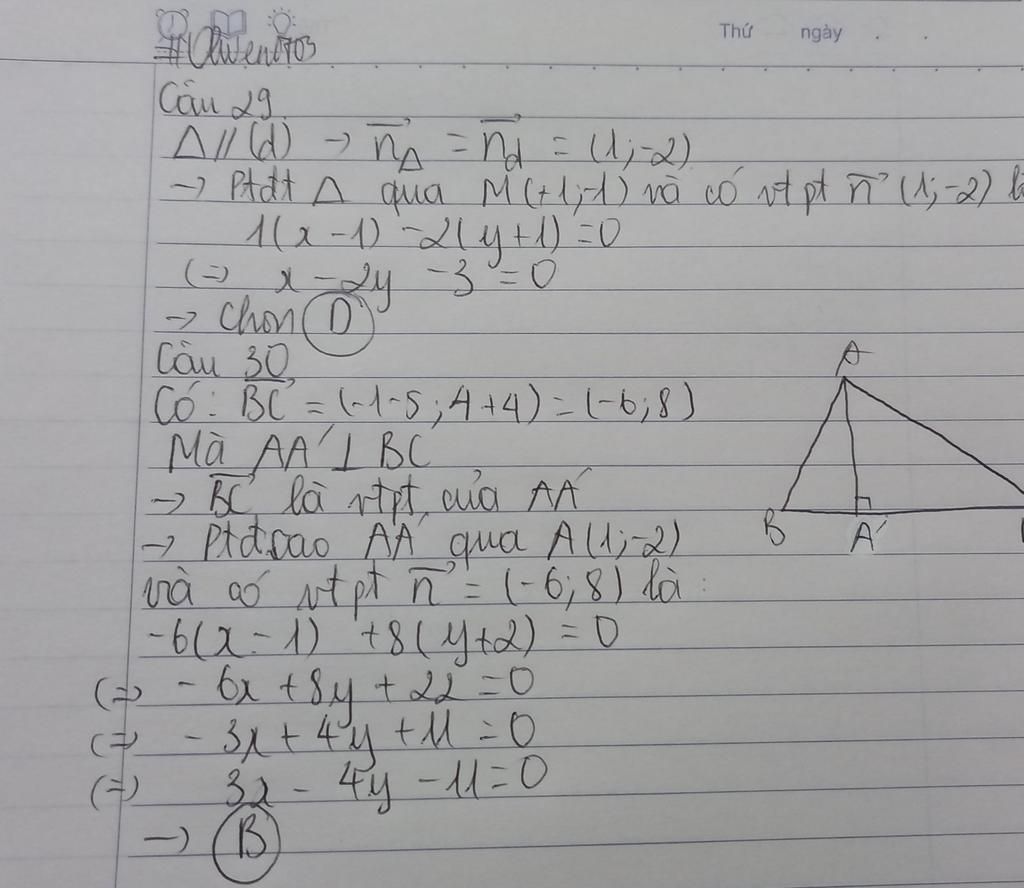 Thứ ngày . .
Câu 29.
Δ // (d) → n⃗Δ = n⃗d = (1;-2)
→ Ptđt Δ qua M(+1;-1) và có vtpt n⃗ (1;-2) l
1(x-1) -2(y+1) = 0
(=> x - 2y - 3 = 0
→ Chọn D
Câu 30
Có: BC⃗ = (-1-5; 4+4) = (-6;8)
Mà AA' ⊥ BC
→ BC⃗ là vtpt của AA'
→ Ptđcao AA' qua A(1;-2)
và có vtpt n⃗ = (-6;8) là:
-6(x-1) +8(y+2) = 0
(=> -6x + 8y + 22 = 0
(=> -3x + 4y + 11 = 0
(=) 3x - 4y - 11 = 0
→ B
A
B
A'